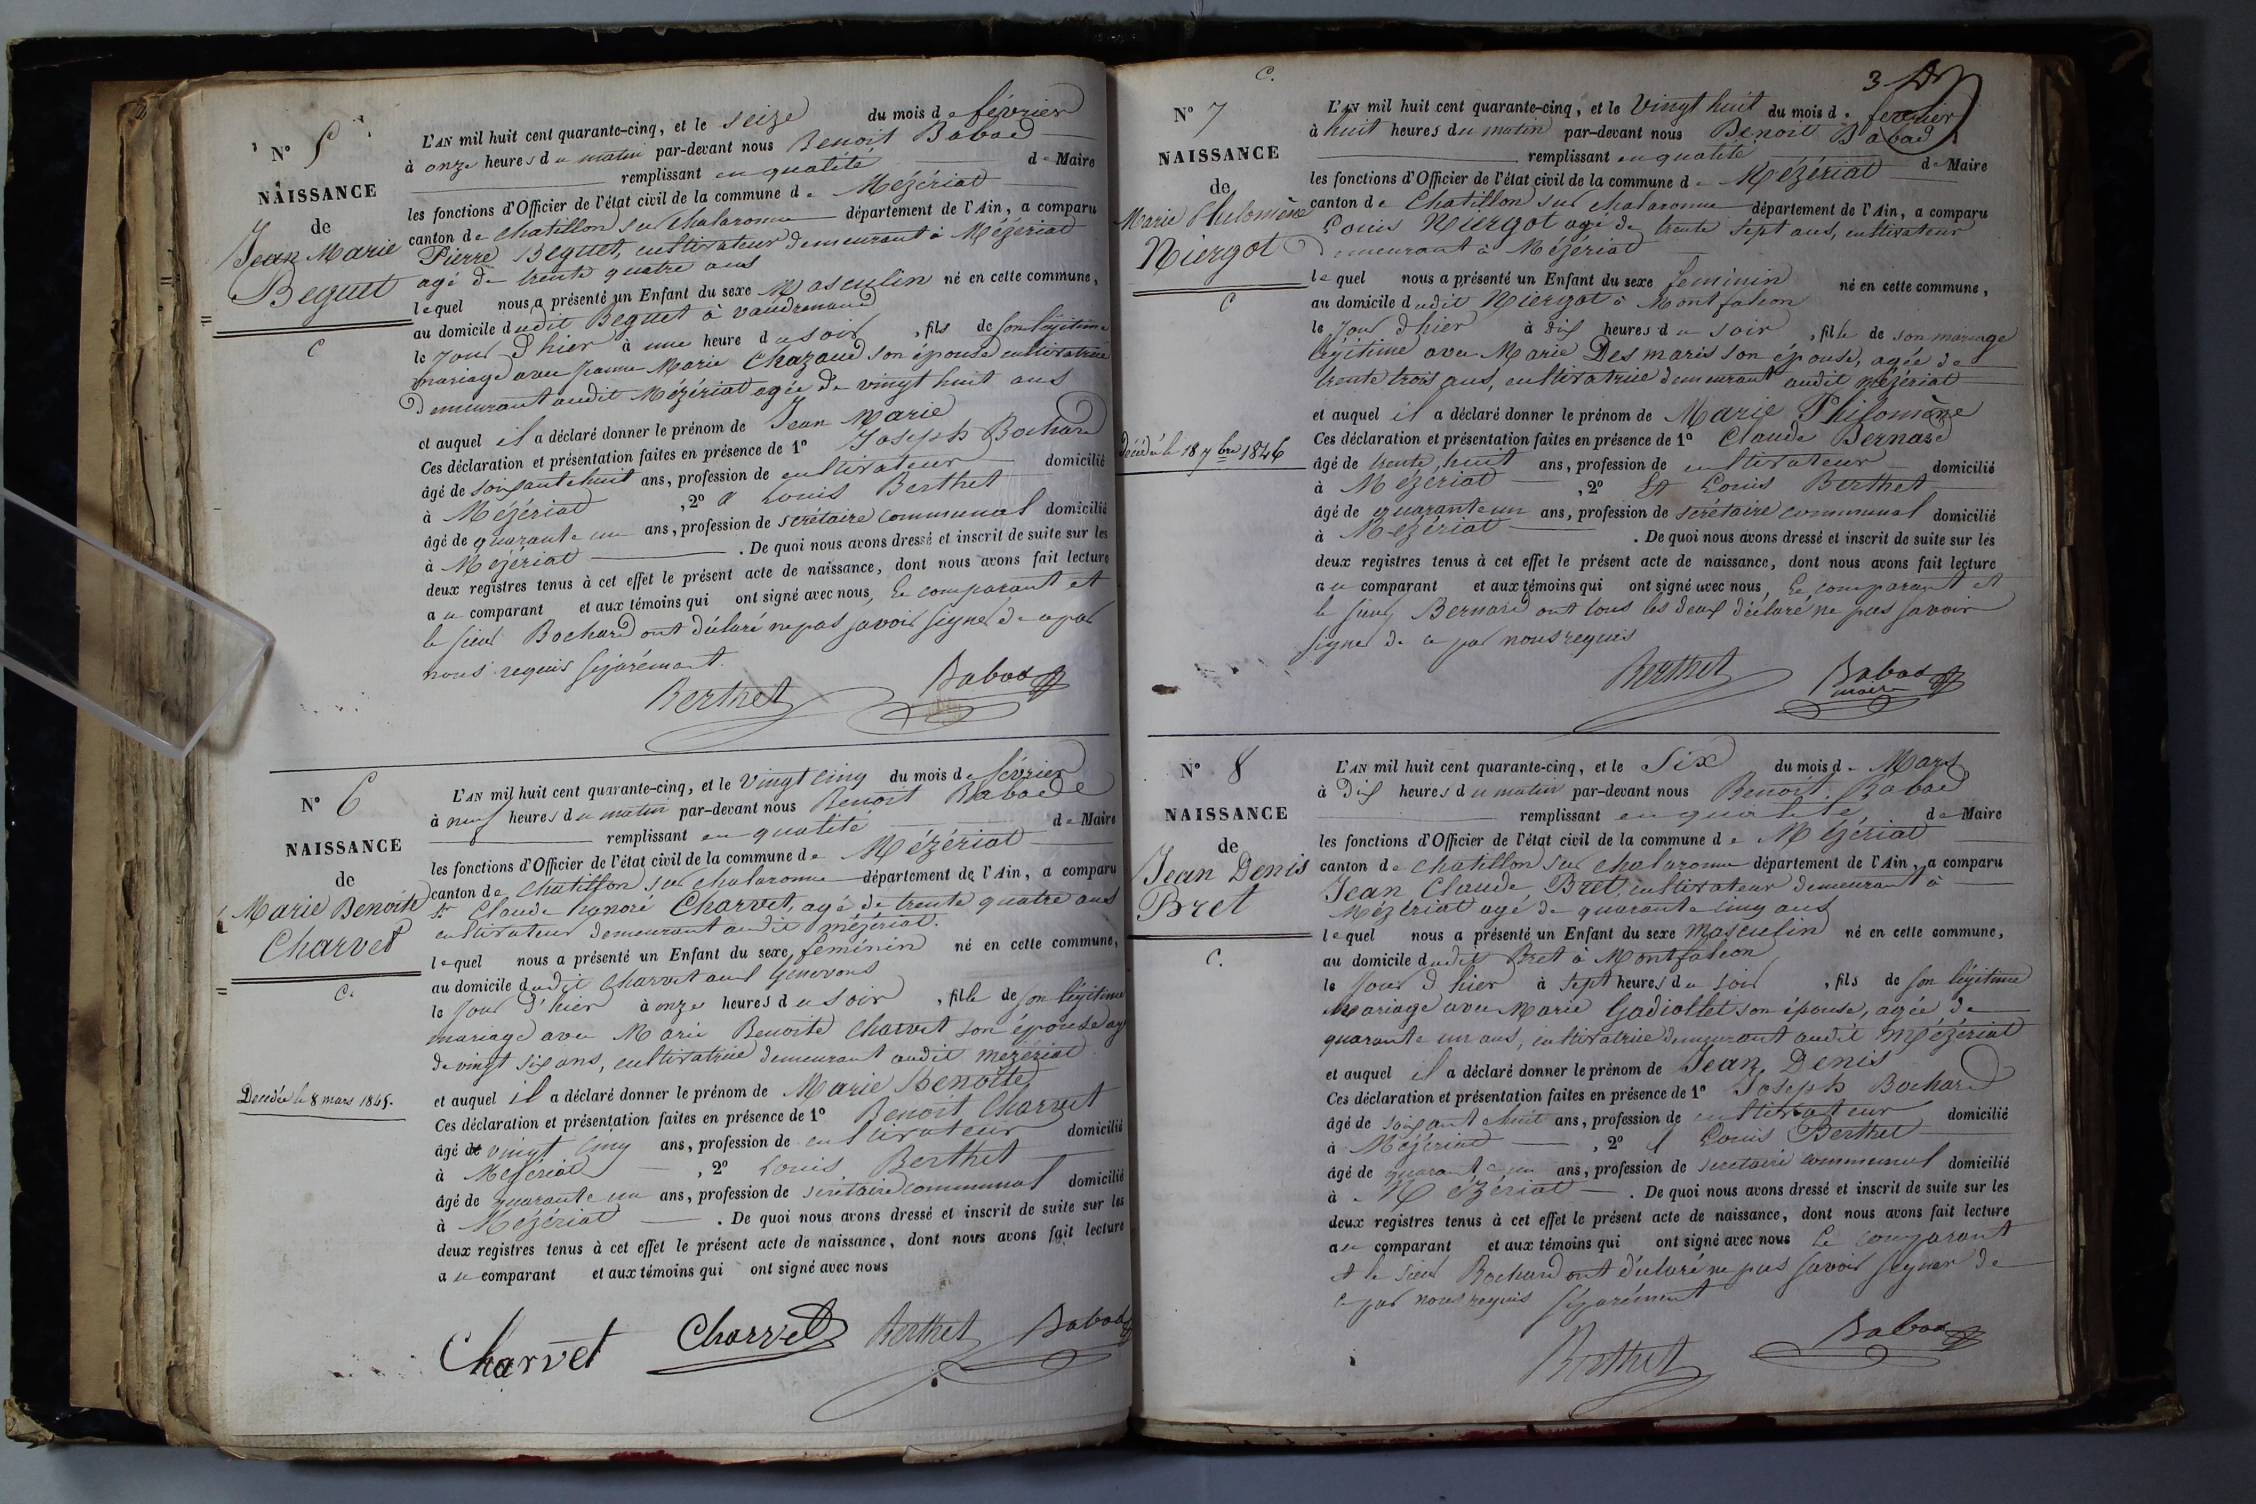 N° 5
NAISSANCE
de
Jean Marie
Beguet
C
L'AN mil huit cent quarante-cinq, et le seize du mois de février
à onze heures du matin par-devant nous Benoit Babad
remplissant en qualité de Maire
les fonctions d'Officier de l'état civil de la commune de Mézériat
canton de Chatillon sur Chalaronne département de l'Ain, a comparu
Pierre Beguet, cultivateur demeurant à Mézériat
agé de trente quatre ans
lequel nous a présenté un Enfant du sexe Masculin né en cette commune,
au domicile dudit Beguet à vaudrenand
le jour d'hier à une heure du soir, fils de son légitime
mariage avec Jeanne Marie Chazaud son épouse cultivatrice
demeurant audit Mézériat agée de vingt huit ans
et auquel il a déclaré donner le prénom de Jean Marie
Ces déclaration et présentation faites en présence de 1° Joseph Bochard
âgé de soixante huit ans, profession de cultivateur domicilié
à Mézériat, 2° Louis Berthet
âgé de quarante un ans, profession de secrétaire communal domicilié
à Mézériat. De quoi nous avons dressé et inscrit de suite sur les
deux registres tenus à cet effet le présent acte de naissance, dont nous avons fait lecture
au comparant et aux témoins qui ont signé avec nous, le comparant et
le sieur Bochard ont déclaré ne pas savoir signer de ce par
nous requis séparément.
Berthet Babad
N° 6
NAISSANCE
de
Marie Benoite
Charvet
C.
Decédée le 8 mars 1845.
L'AN mil huit cent quarante-cinq, et le vingt cinq du mois de février
à neuf heures du matin par-devant nous Benoit Babad
remplissant en qualité de Maire
les fonctions d'Officier de l'état civil de la commune de Mézériat
canton de Chatillon sur Chalaronne département de l'Ain, a comparu
Sr Claude honoré Charvet, agé de trente quatre ans
cultivateur demeurant audit mézériat.
lequel nous a présenté un Enfant du sexe féminin né en cette commune,
au domicile dudit Charvet aux Genevons
le jour d'hier à onze heures du soir, fille de son légitime
mariage avec Marie Benoite Charvet son épouse ag
de vingt six ans, cultivatrice demeurant audit mézériat
et auquel il a déclaré donner le prénom de Marie Benoite
Ces déclaration et présentation faites en présence de 1° Benoit Charvet
âgé de vingt cinq ans, profession de cultivateur domicilié
à Mézériat, 2° Louis Berthet
âgé de quarante un ans, profession de secrétaire communal domicilié
à Mézériat. De quoi nous avons dressé et inscrit de suite sur les
deux registres tenus à cet effet le présent acte de naissance, dont nous avons fait lecture
au comparant et aux témoins qui ont signé avec nous
Charvet Charvet Berthet Babad
C.
3
N° 7
NAISSANCE
de
Marie Philomène
Niergot
C
Décédée le 18 7bre 1846
L'AN mil huit cent quarante-cinq, et le vingt huit du mois de fevrier
à huit heures du matin par-devant nous Benoit Babad
remplissant en qualité de Maire
les fonctions d'Officier de l'état civil de la commune de Mézériat
canton de Chatillon sur Chalaronne département de l'Ain, a comparu
Louis Niergot agé de trente sept ans, cultivateur
demeurant à Mézériat
lequel nous a présenté un Enfant du sexe feminin né en cette commune,
au domicile dudit Niergot à Montfalcon
le jour d'hier à dix heures du soir, fille de son mariage
légitime avec Marie Desmaris son épouse, agée de
trente trois ans, cultivatrice demeurant audit mézériat
et auquel il a déclaré donner le prénom de Marie Philomène
Ces déclaration et présentation faites en présence de 1° Claude Bernard
âgé de trente huit ans, profession de cultivateur domicilié
à Mézériat, 2° St Louis Berthet
âgé de quarante un ans, profession de secrétaire communal domicilié
à Mézériat. De quoi nous avons dressé et inscrit de suite sur les
deux registres tenus à cet effet le présent acte de naissance, dont nous avons fait lecture
au comparant et aux témoins qui ont signé avec nous, le comparant et
le sieur Bernard ont tous les deux déclaré ne pas savoir
signer de ce par nous requis
Berthet Babad
maire
N° 8
NAISSANCE
de
Jean Denis
Bret
C.
L'AN mil huit cent quarante-cinq, et le Six du mois de Mars
à dix heures du matin par-devant nous Benoit Babad
remplissant en qualité de Maire
les fonctions d'Officier de l'état civil de la commune de Mézériat
canton de Chatillon sur Chalaronne département de l'Ain, a comparu
Jean Claude Bret, cultivateur demeurant à
Mézériat agé de quarante cinq ans
lequel nous a présenté un Enfant du sexe Masculin né en cette commune,
au domicile dudit Bret à Montfalcon
le jour d'hier à sept heures du soir, fils de son légitime
mariage avec Marie Gadiollet son épouse, agée de
quarante un ans, cultivatrice demeurant audit Mézériat
et auquel il a déclaré donner le prénom de Jean Denis
Ces déclaration et présentation faites en présence de 1° Joseph Bochard
âgé de soixante huit ans, profession de cultivateur domicilié
à Mézériat, 2° Louis Berthet
âgé de quarante un ans, profession de secretaire communal domicilié
à Mézériat. De quoi nous avons dressé et inscrit de suite sur les
deux registres tenus à cet effet le présent acte de naissance, dont nous avons fait lecture
au comparant et aux témoins qui ont signé avec nous le comparant
et le sieur Bochard ont déclaré ne pas savoir signer de
ce par nous requis séparément
Berthet Babad